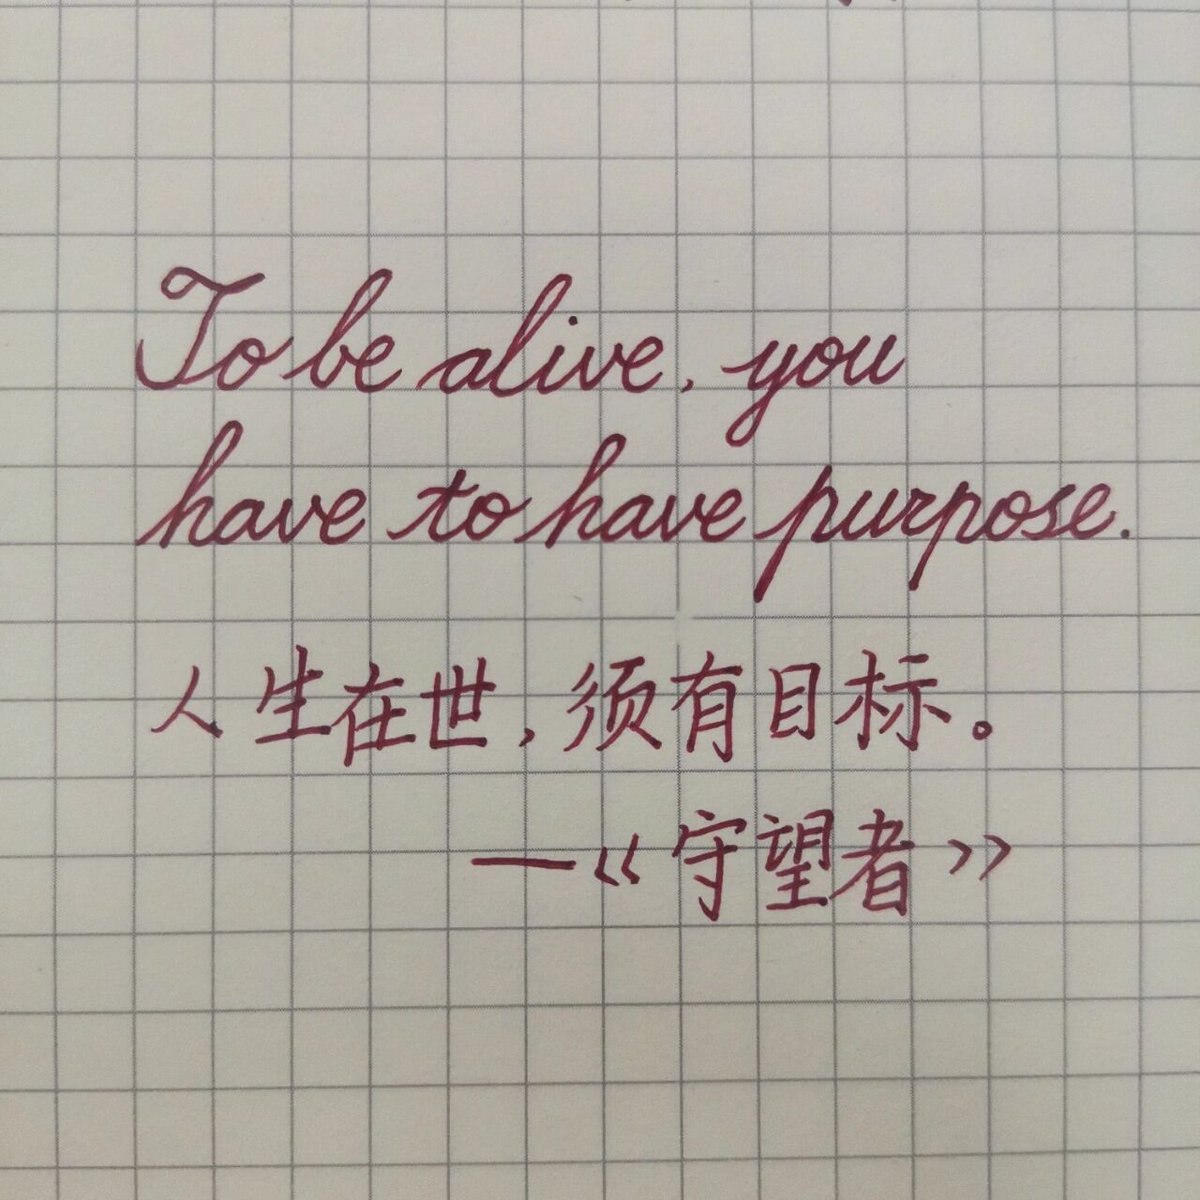 To be alive, you
have to have purpose.
人生在世,须有目标。
—《守望者》